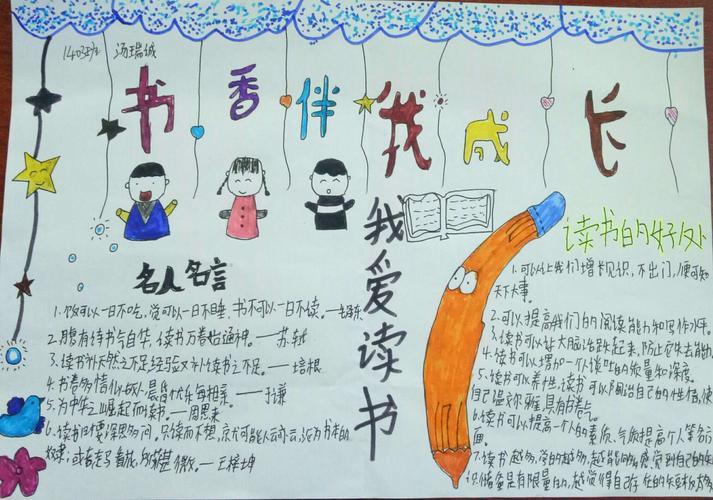 1403班 汤瑞城
书香伴我成长
我爱读书
名人名言
1.饭可以一日不吃,觉可以一日不睡,书不可以一日不读。——毛泽东
2.腹有诗书气自华,读书万卷始通神。——苏轼
3.读书补天然之不足,经验又补读书之不足。——培根
4.书卷多情似故人,晨昏忧乐每相亲。——于谦
5.为中华之崛起而读书。——周恩来
6.读书时要深思多问,只读而不想,就可能人云亦云,沦为书本的
效果,或者走马看花,所获甚微。——王梓坤
读书的好处
1.可以让我们增长见识,不出门,便可知
天下大事。
2.可以提高我们的阅读能力和写作水平。
3.读书可以让大脑活跃起来,防止它失去能力
4.读书可以增加一个人谈吐的质量和深度。
5.读书可以养性,读书可以陶冶自己的性情,使
自己温文尔雅,具有书卷气。
6.读书可以提高一个人的素质、气质提高个人等方
面。
7.读书越多,学的越多,越能感觉到自己的知
识储备是有限量的,越觉得自己存在的